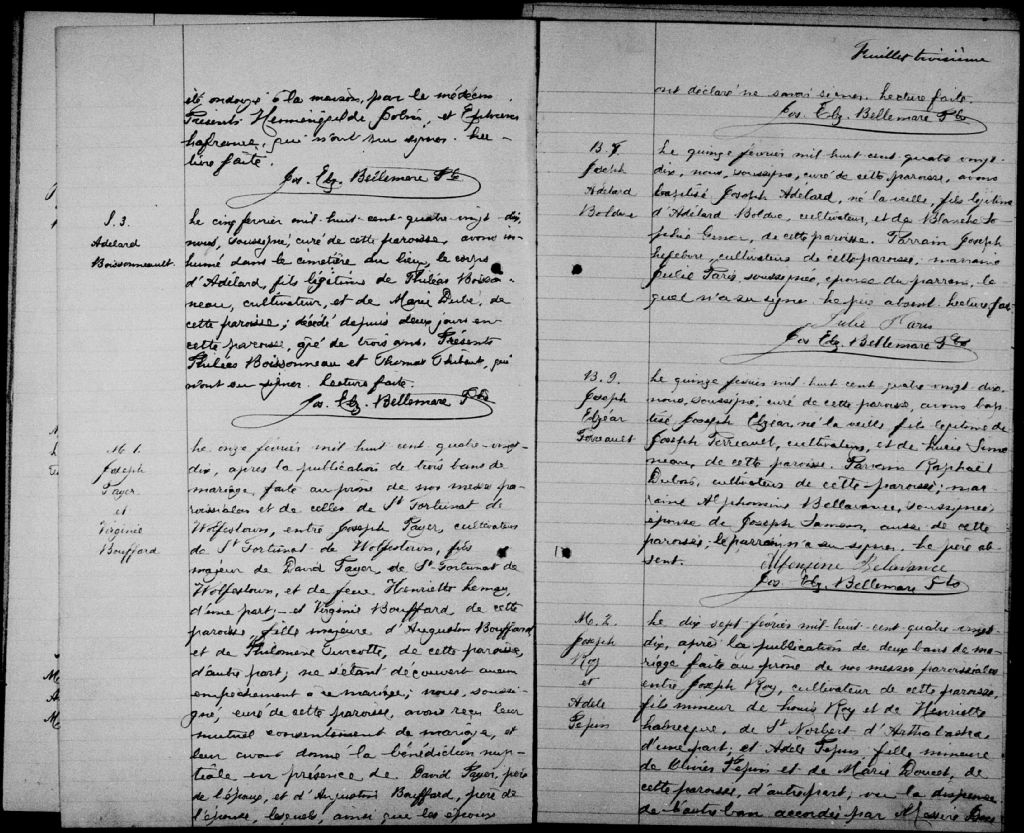 été ondoyé à la maison, par le médecin.
Présents Herménégilde Bolvin, et Ephrem
Lafrance, qui n'ont su signer. Lec-
ture faite.
Jos. Elz. Bellemare Ptre
S. 3.
Adélard
Boissonneault
Le cinq février mil-huit-cent-quatre-vingt-dix,
nous, soussigné, curé de cette paroisse, avons in-
humé dans le cimetière du lieu, le corps
d'Adélard, fils légitime de Philéas Boisson-
neau, cultivateur, et de Marie Dubé, de
cette paroisse; décédé depuis deux jours en
cette paroisse, âgé de trois ans. Présents
Philéas Boissonneau et Thomas Thibaut, qui
n'ont su signer. Lecture faite.
Jos. Elz. Bellemare Ptre
M. 1.
Joseph
Payer
et
Virginie
Bouffard
Le onze février mil huit cent quatre-vingt
dix, après la publication de trois bans de
mariage faite au prône de nos messes pa-
roissiales et de celles de St Fortunat de
Wolfestown, entre Joseph Payer, cultivateur
de St Fortunat de Wolfestown, fils
majeur de David Payer, de St Fortunat de
Wolfestown, et de feue Henriette Lemay
d'une part; et Virginie Bouffard de cette
paroisse, fille majeure d'Augustin Bouffard
et de Philomène Turcotte, de cette paroisse,
d'autre part; ne s'étant découvert aucun
empêchement à ce mariage; nous, soussi-
gné, curé de cette paroisse, avons reçu leur
mutuel consentement de mariage, et
leur avons donné la bénédiction nup-
tiale en présence de David Payer, père
de l'époux, et d'Augustin Bouffard, père de
l'épouse, lesquels, ainsi que les époux
Feuillet troisième
ont déclaré ne savoir signer. Lecture faite.
Jos. Elz. Bellemare Ptre
B. 8.
Joseph
Adélard
Bolduc
Le quinze février mil-huit-cent-quatre-vingt-
dix, nous, soussigné, curé de cette paroisse, avons
baptisé Joseph Adélard, né la veille, fils légitime
d'Adélard Bolduc, cultivateur, et de Blanche So-
phie, de cette paroisse. Parrain Joseph
Lefebvre, cultivateur de cette paroisse, marraine
Julie Paris, soussignée, épouse du parrain, le-
quel n'a su signer. Le père absent. Lecture faite
Julie Paris
Jos Elz. Bellemare Ptre
B. 9.
Joseph
Elzéar
Le quinze février mil huit cent quatre vingt dix
nous, soussigné, curé de cette paroisse, avons bap-
tisé Joseph Elzéar, né la veille fils légitime de
Joseph Perreault, cultivateur, et de Lucie Simo-
neau, de cette paroisse. Parrain Raphaël
Dubois, cultivateur de cette paroisse; mar-
raine Alphonsine Bellavance, soussignée,
épouse de Joseph Samson, aussi de cette
paroisse; le parrain n'a su signer. Le père ab-
sent.
Alfonsine Belavance
Jos. Elz. Bellemare Ptre
M. 2.
Joseph
Roy
et
Adèle
Pepin
Le dix sept février mil-huit-cent-quatre-vingt-
dix, après la publication de deux bans de ma-
riage faite au prône de nos messes paroissiales
entre Joseph Roy, cultivateur de cette paroisse,
fils mineur de Louis Roy et de Henriette
Labrecque, de St Norbert d'Arthabaska
d'une part; et Adèle Pepin fille mineure
de Olivier Pepin et de Marie Doucet, de
cette paroisse, d'autre part; vu la dispense
de l'autre ban accordée par Messire